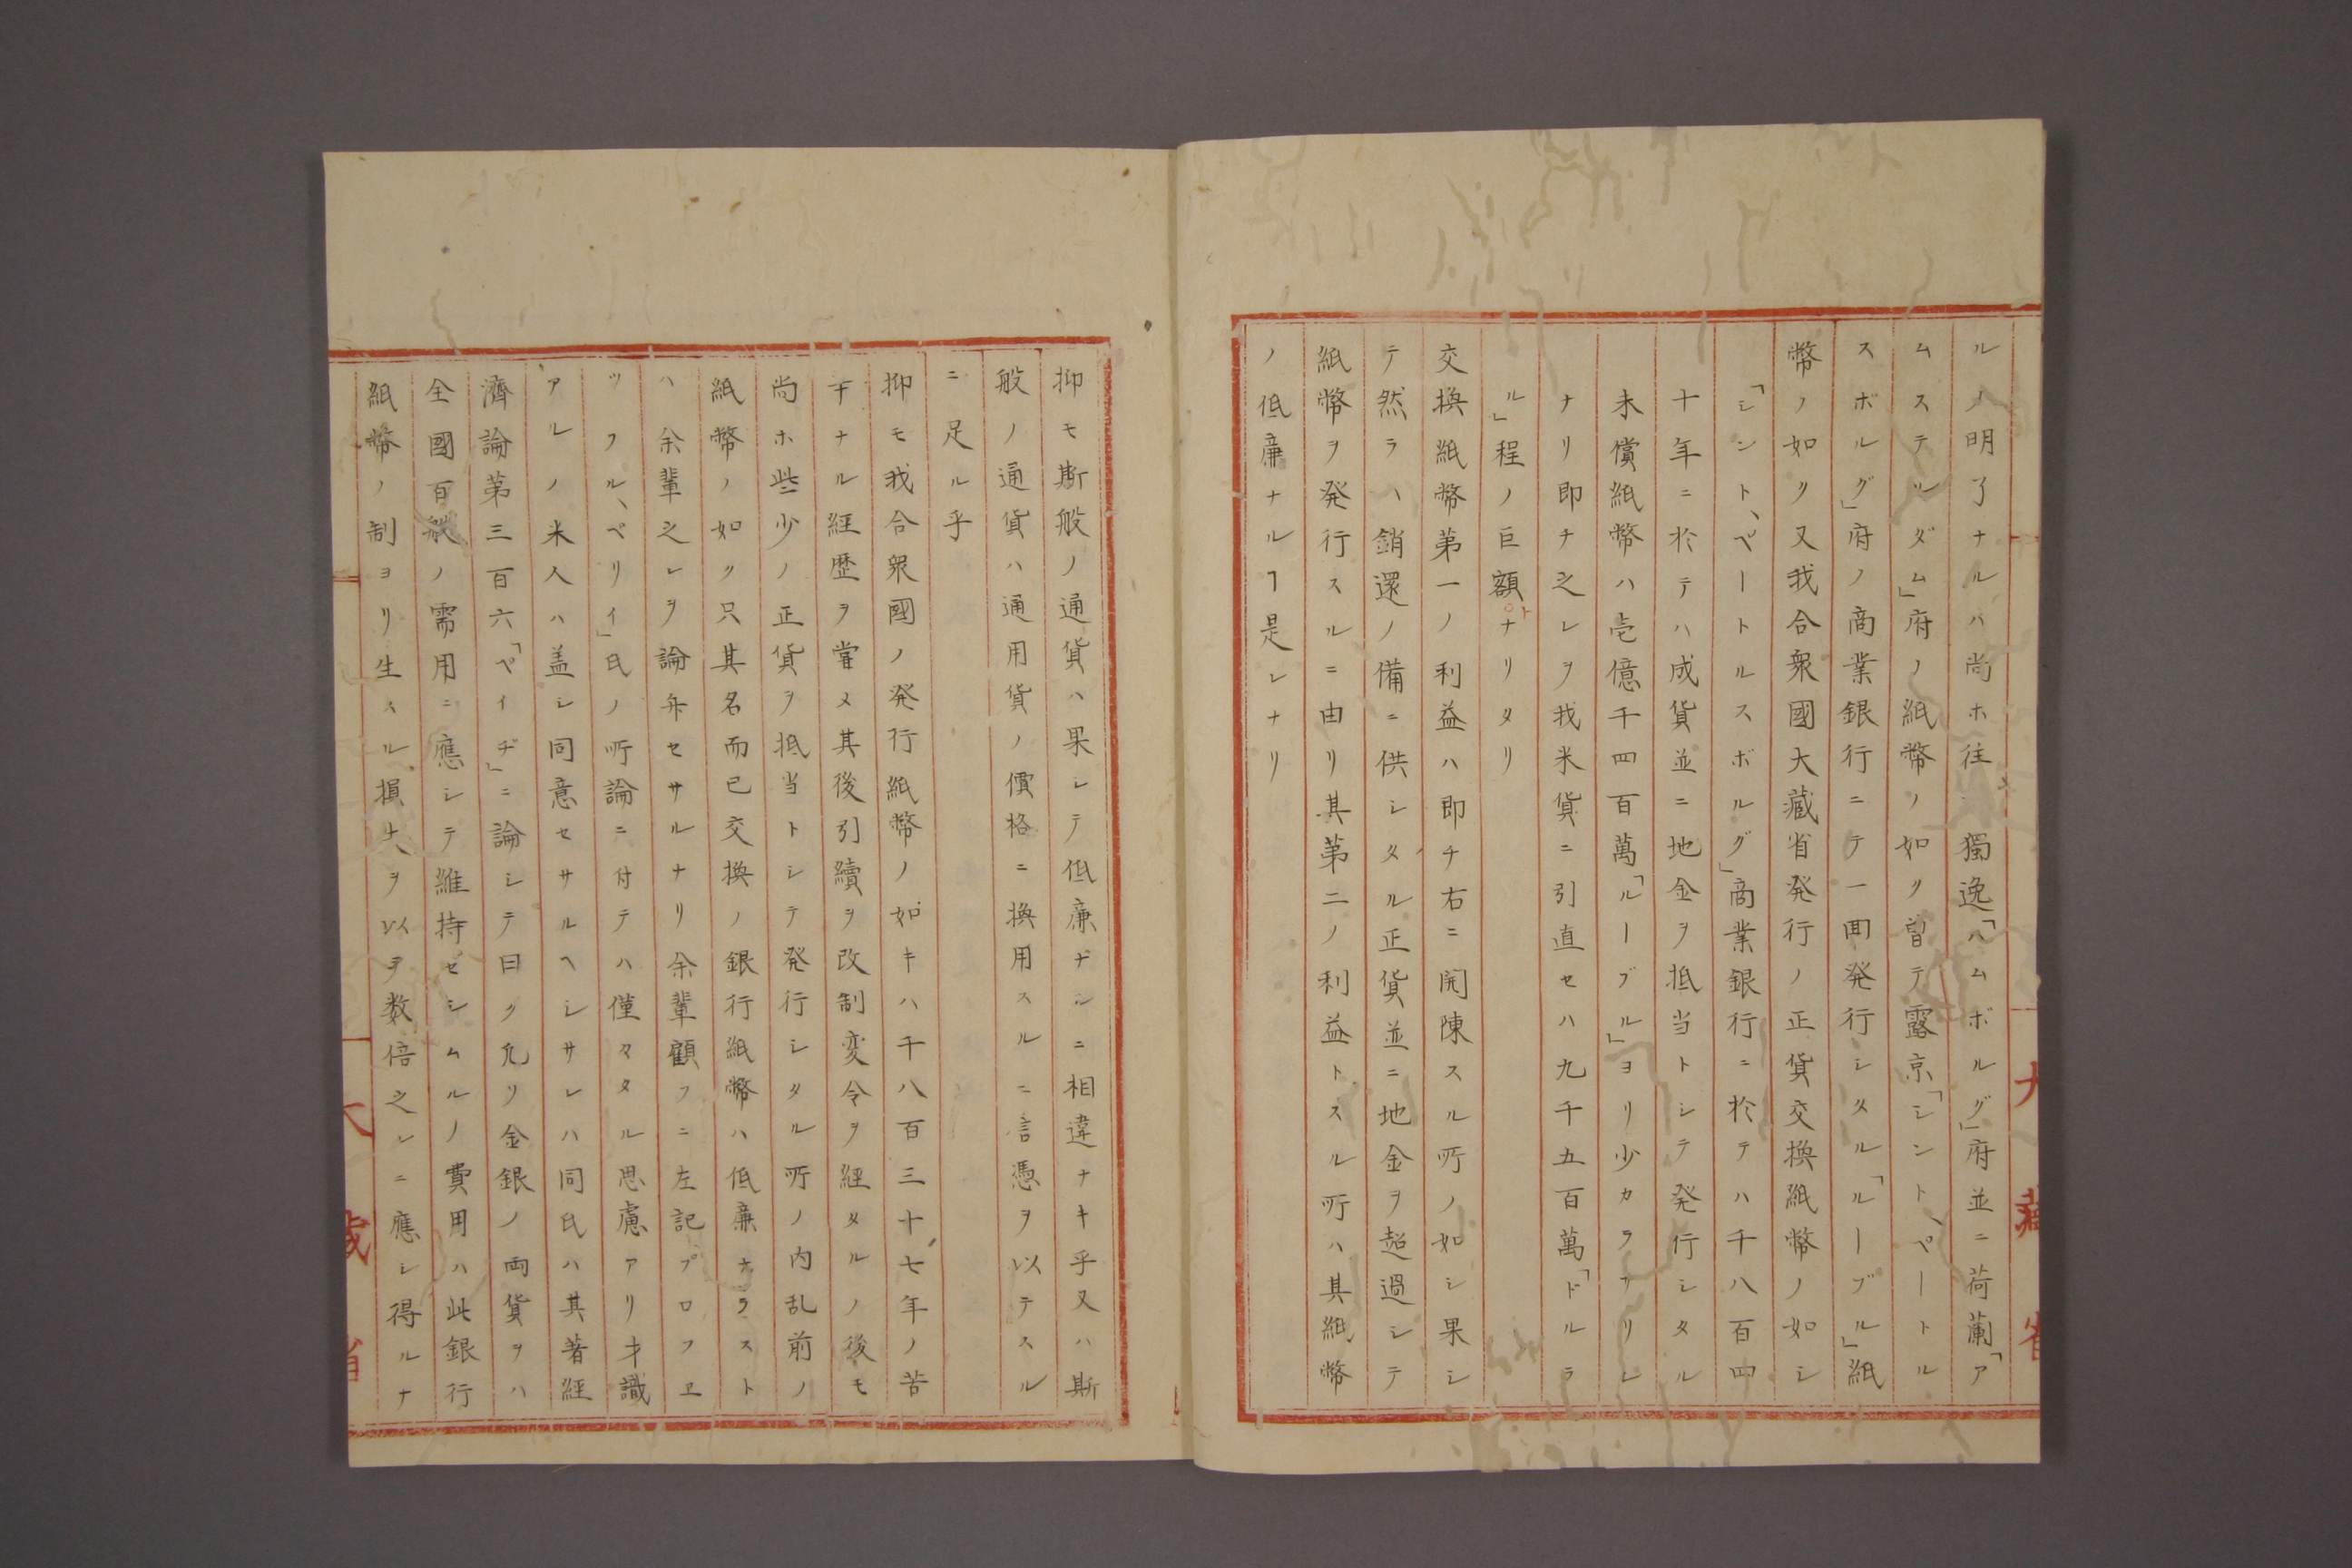 ルノ明了ナルハ尚ホ往獨逸「ハムボルグ」府並ニ荷蘭「ア
ムステルダム」府ノ紙幣ノ如ク曽テ露京「シント、ペートル
スボルグ」府ノ商業銀行ニテ一囬発行シタル「ルーブル」紙
幣ノ如ク又我合衆國大藏省発行ノ正貨交換紙幣ノ如シ
「シント、ペートルスボルグ」商業銀行ニ於テハ千八百四
十年ニ於テハ成貨並ニ地金ヲ抵当トシテ発行シタル
未償紙幣ハ壱億千四百萬「ルーブル」ヨリ少カラサリシ
ナリ即チ之レヲ我米貨ニ引直セハ九千五百萬「ドルラ
ル」程ノ巨額ナリタリ
交換紙幣第一ノ利益ハ即チ右ニ開陳スル所ノ如シ果シ
テ然ラハ銷還ノ備ニ供シタル正貨並ニ地金ヲ超過シテ
紙幣ヲ発行スルニ由リ其第二ノ利益トスル所ハ其紙幣
ノ低廉ナルヿ是レナリ
抑モ斯般ノ通貨ハ果シテ低廉ナルニ相違ナキ乎又ハ斯
般ノ通貨ハ通用貨ノ價格ニ換用スルニ信憑ヲ以テスル
ニ足ル乎
抑モ我合衆國ノ発行紙幣ノ如キハ千八百三十七年ノ苦
辛ナル経歴ヲ甞メ其後引續ヲ改制変令ヲ経タルノ後モ
尚ホ些少ノ正貨ヲ抵当トシテ発行シタル所ノ内乱前ノ
紙幣ノ如ク只其名而已交換ノ銀行紙幣ハ低廉ナラスト
ハ余輩之レヲ論弁セサルナリ余輩顧フニ左記プロフヱ
ッフル、ペリイ」氏ノ所論ニ付テハ僅々タル思慮アリ才識
アルノ米人ハ盖シ同意セサルヘシサレハ同氏ハ其著経
濟論第三百六「ペイヂ」ニ論シテ曰ク凡リ金銀ノ両貨ヲハ
全國百般ノ需用ニ應シテ維持セシムルノ費用ハ此銀行
紙幣ノ制ヨリ生スル損失ヲ以ヲ数倍之レニ應シ得ルナ
大藏省
大藏省